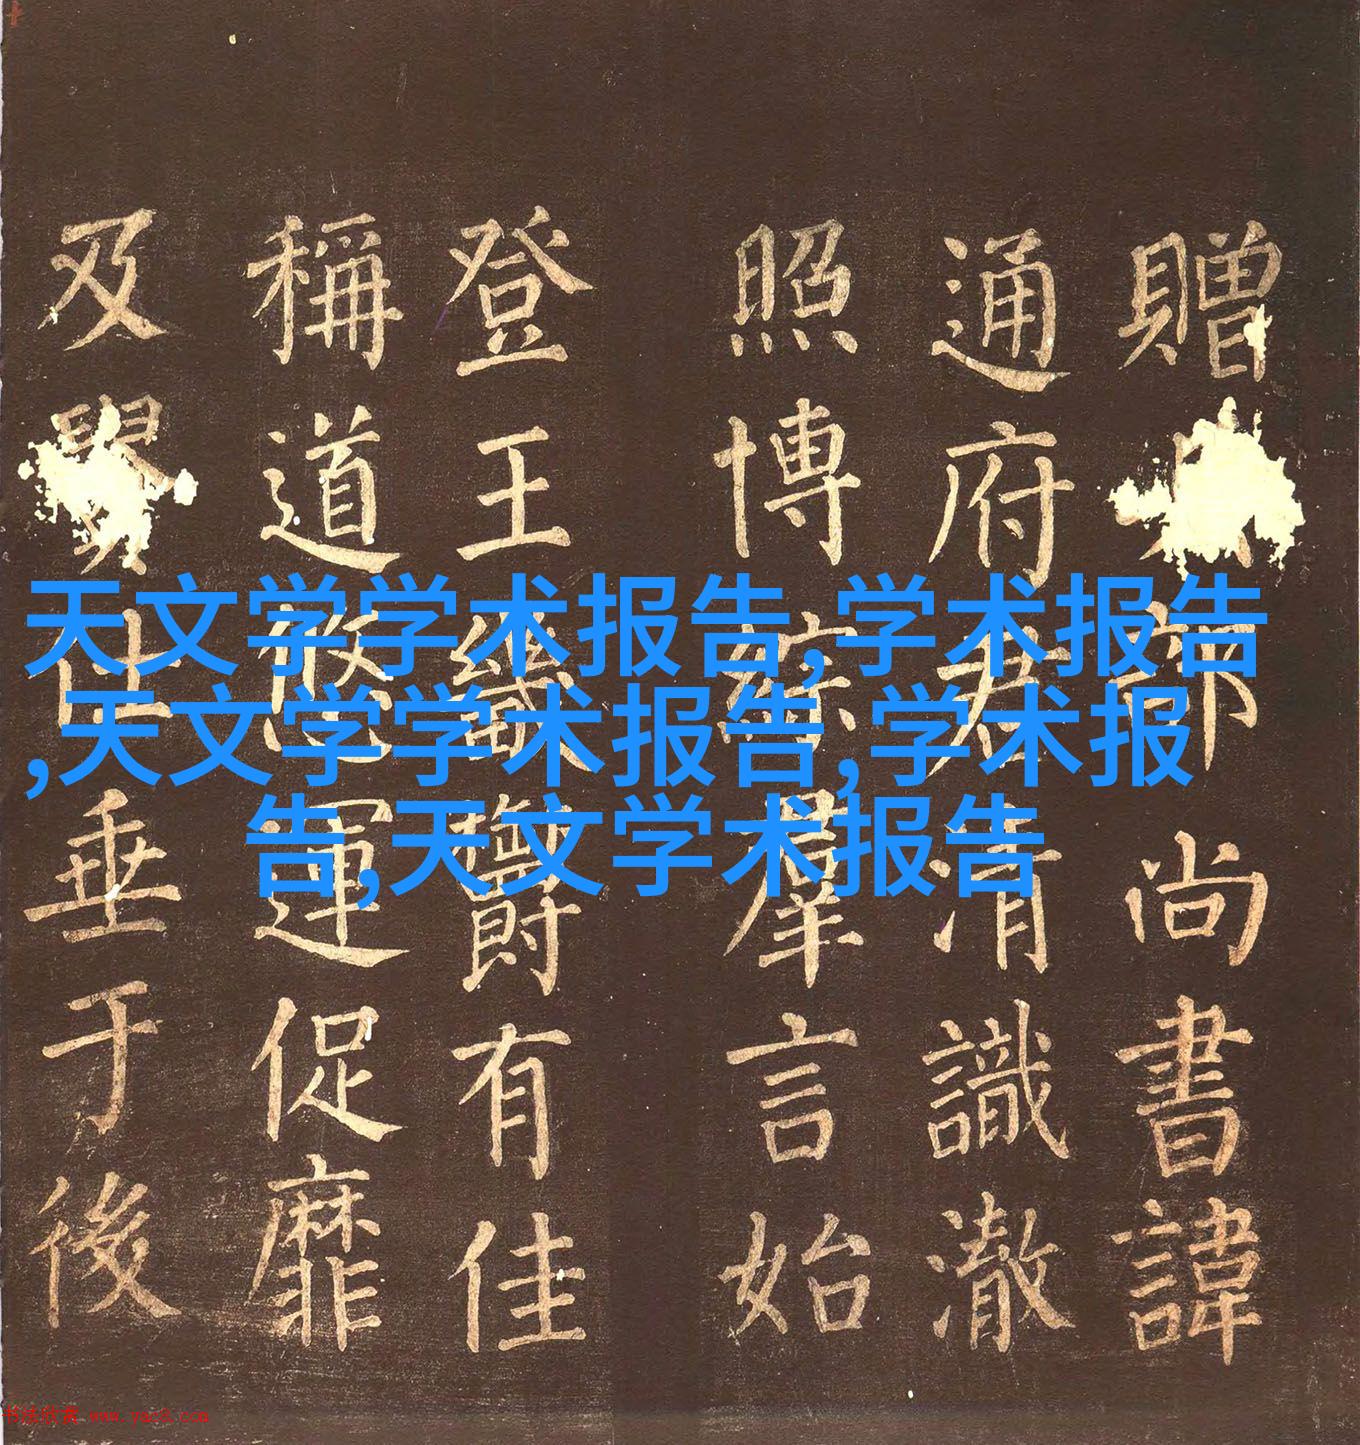 天文学学术报告,学术报告
,天文学学术报告,学术报
告,天文学术报告
贈部尚書諱
通府君清識澈
照博羣言始
登王畿爵有佳
稱道悠運促靡
及仕垂于後
书法欣赏 www.yac8.com